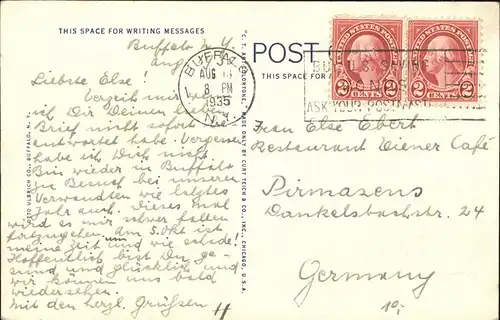 THIS SPACE FOR WRITING MESSAGES
Buffalo N.Y.
Aug
Liebste Else!
Verzeih mir
ich Dir Deinen
Brief nicht sofort
antwortet habe. Vergessen
habe ich Dich nicht
Bin wieder in Buffalo
zu Besuch bei unseren
Verwandten wie letztes
Jahr auch. Dieses mal
wird es mir schwer fallen
fortzugehen. Am 5. Okt ist
meine Zeit um und wie schade!
Hoffentlich bist Du ge-
sund und glücklich und
wir können uns bald
wiedersehen.
Mit den herzl. Grüßen
BUFFALO
AUG
8 PM
1935
N.Y.
OTTO ULBRICH CO., BUFFALO, N. Y.
"C. T. ART-COLORTONE" MADE ONLY BY CURT TEICH & CO., INC., CHICAGO, U.S.A.
POST
THIS SPACE FOR
UNITED STATES POSTAGE
2 CENTS 2
UNITED STATES POSTAGE
2 CENTS 2
BUY U.S. SAVINGS
ASK YOUR POSTMASTER
Frau Else Ebert
Restaurant Wiener Café
Pirmasens
Dankelsbachstr. 24
Germany
10,-